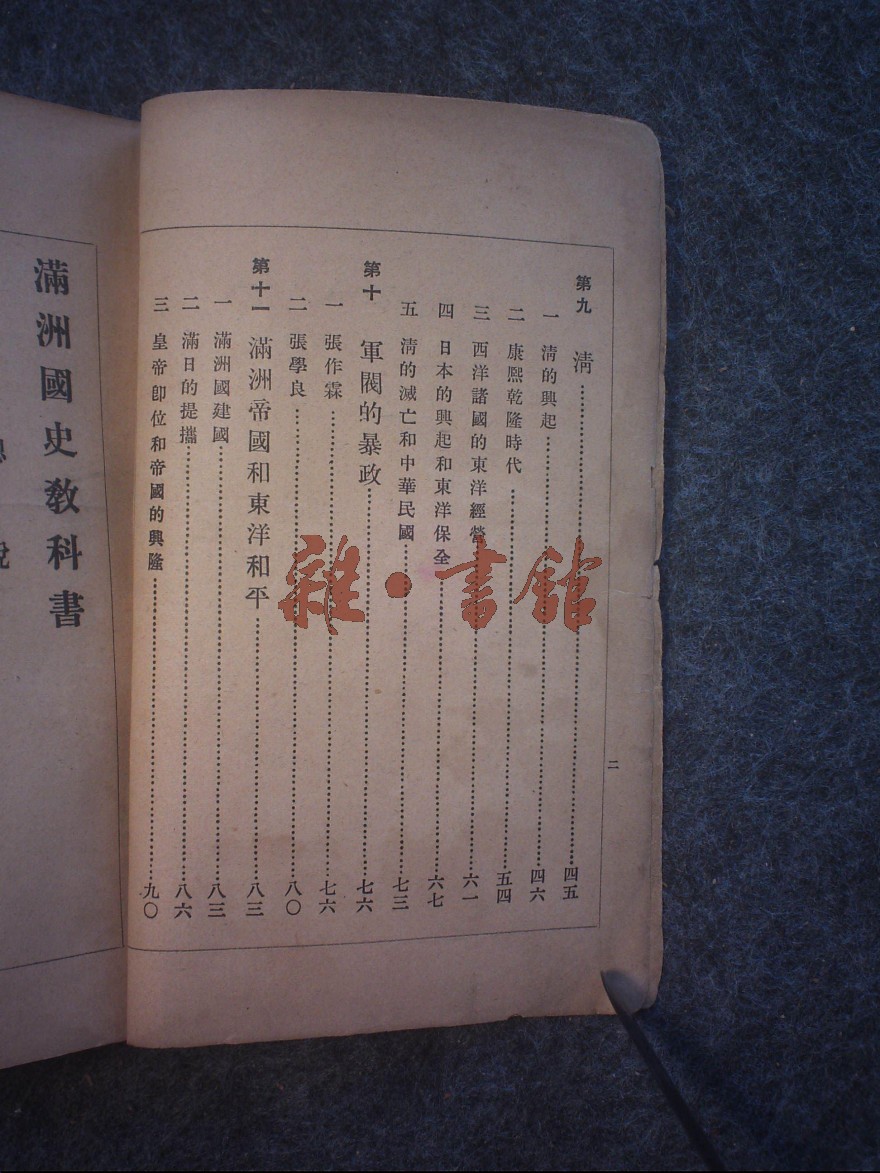 第九 淸……四五
一 淸的興起……四六
二 康熙乾隆時代……五四
三 西洋諸國的東洋經營……六一
四 日本的興起和東洋保全……六七
五 淸的滅亡和中華民國……七三
第十 軍閥的暴政……七六
一 張作霖……七六
二 張學良……八〇
第十一 滿洲帝國和東洋和平……八三
一 滿洲國建國……八三
二 滿日的提攜……八六
三 皇帝卽位和帝國的興隆……九〇
二
滿洲國史敎科書
雜·書館